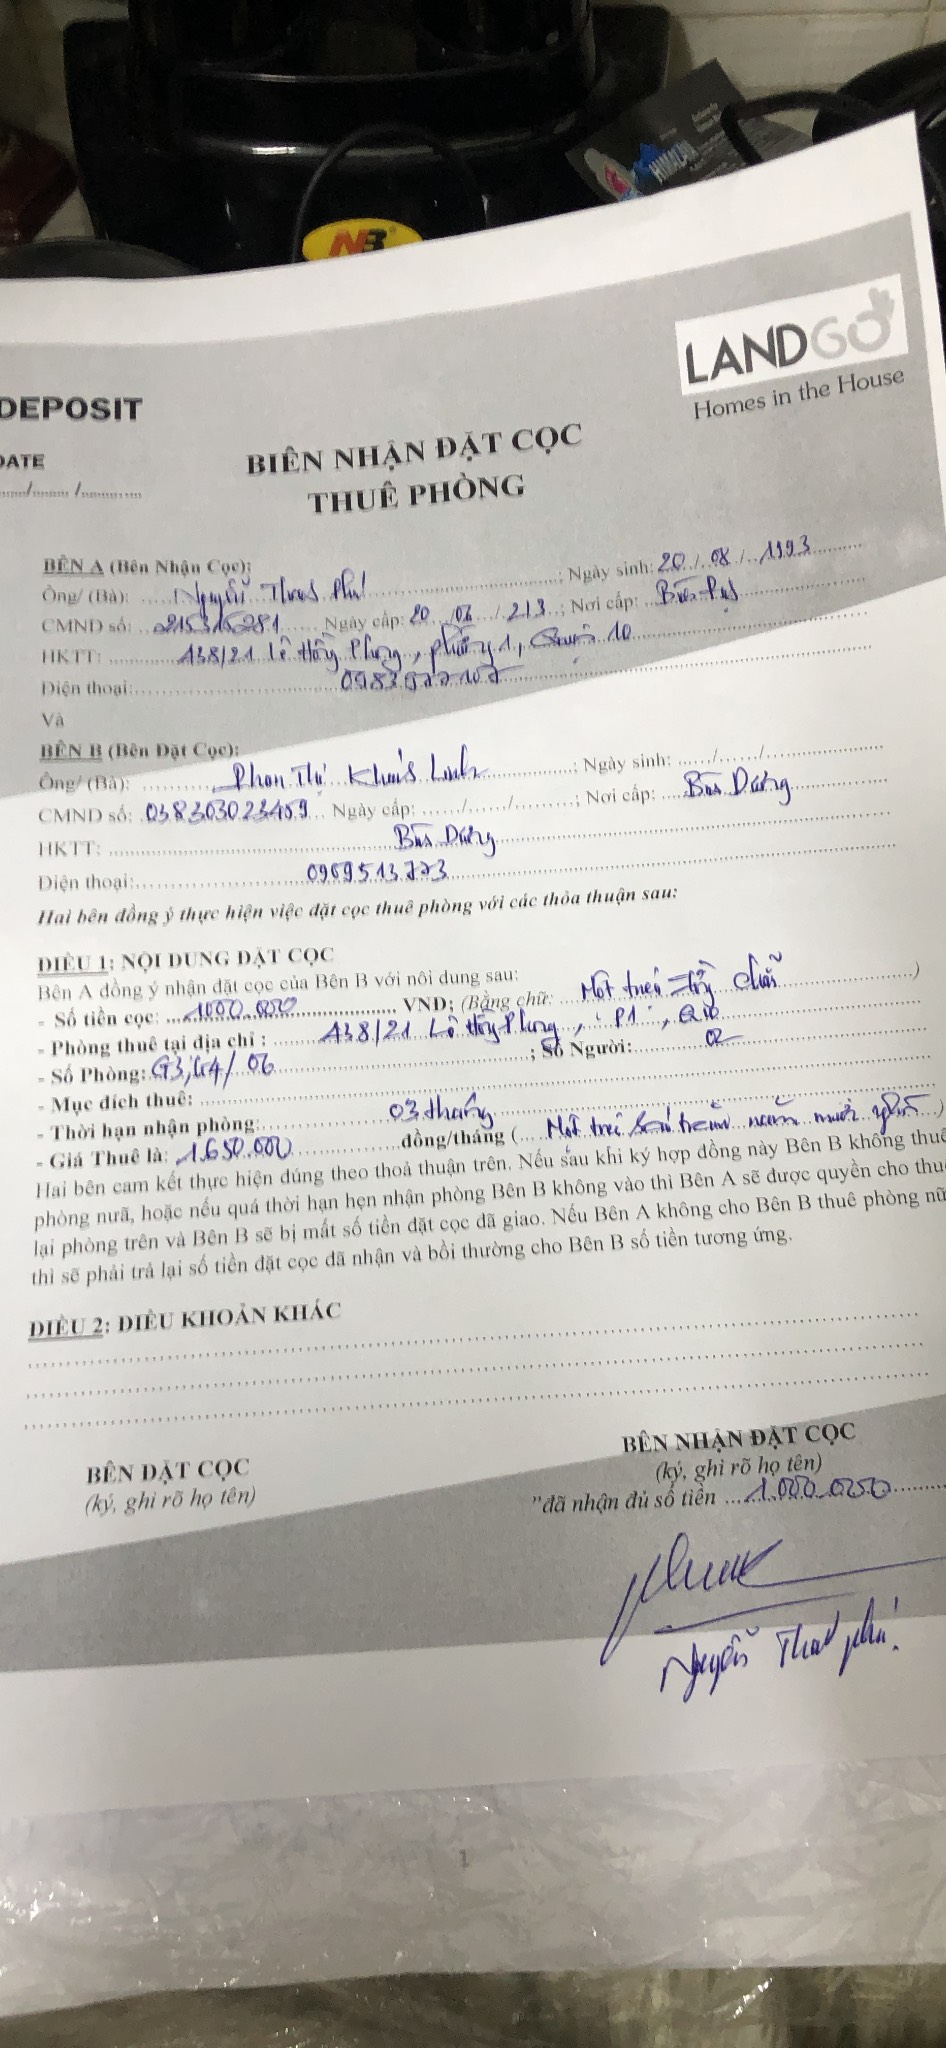 NB
LANDGO
Homes in the House
DEPOSIT
DATE
....../........ /.............
BIÊN NHẬN ĐẶT CỌC
THUÊ PHÒNG
BÊN A (Bên Nhận Cọc):
Ông/ (Bà): Nguyễn Phú ; Ngày sinh: 20 / 08 / 1993
CMND số: 215315281 Ngày cấp: 20 / 06 / 213 ; Nơi cấp:
HKTT: 438/21 Lê Hồng Phong, phường 1, Quận 10
Điện thoại:
Và
BÊN B (Bên Đặt Cọc):
Ông/ (Bà): Phan Thị Khánh Linh ; Ngày sinh: ....../....../............
CMND số: 038303023459 Ngày cấp: ....../....../......... ; Nơi cấp: Bình Dương
HKTT: Bình Dương
Điện thoại: 0969513773
Hai bên đồng ý thực hiện việc đặt cọc thuê phòng với các thỏa thuận sau:
ĐIỀU 1: NỘI DUNG ĐẶT CỌC
Bên A đồng ý nhận đặt cọc của Bên B với nôi dung sau:
- Số tiền cọc: 1000.000 VND; (Bằng chữ: Một triệu đồng chẵn )
- Phòng thuê tại địa chỉ : 438/21 Lê Hồng Phong, P1, Q10
- Số Phòng: G3, G4/ 06 ; Số Người: 02
- Mục đích thuê:
- Thời hạn nhận phòng: 03 tháng
- Giá Thuê là: 1.650.000 đồng/tháng ( Một triệu sáu trăm năm mươi nghìn )
Hai bên cam kết thực hiện đúng theo thoả thuận trên. Nếu sau khi ký hợp đồng này Bên B không thuê
phòng nưã, hoặc nếu quá thời hạn hẹn nhận phòng Bên B không vào thì Bên A sẽ được quyền cho thuê
lại phòng trên và Bên B sẽ bị mất số tiền đặt cọc đã giao. Nếu Bên A không cho Bên B thuê phòng nữ
thì sẽ phải trả lại số tiền đặt cọc đã nhận và bồi thường cho Bên B số tiền tương ứng.
ĐIỀU 2: ĐIỀU KHOẢN KHÁC
BÊN ĐẶT CỌC
(ký, ghi rõ họ tên)
BÊN NHẬN ĐẶT CỌC
(ký, ghi rõ họ tên)
"đã nhận đủ số tiền 1.000.000
Nguyễn Phú
1